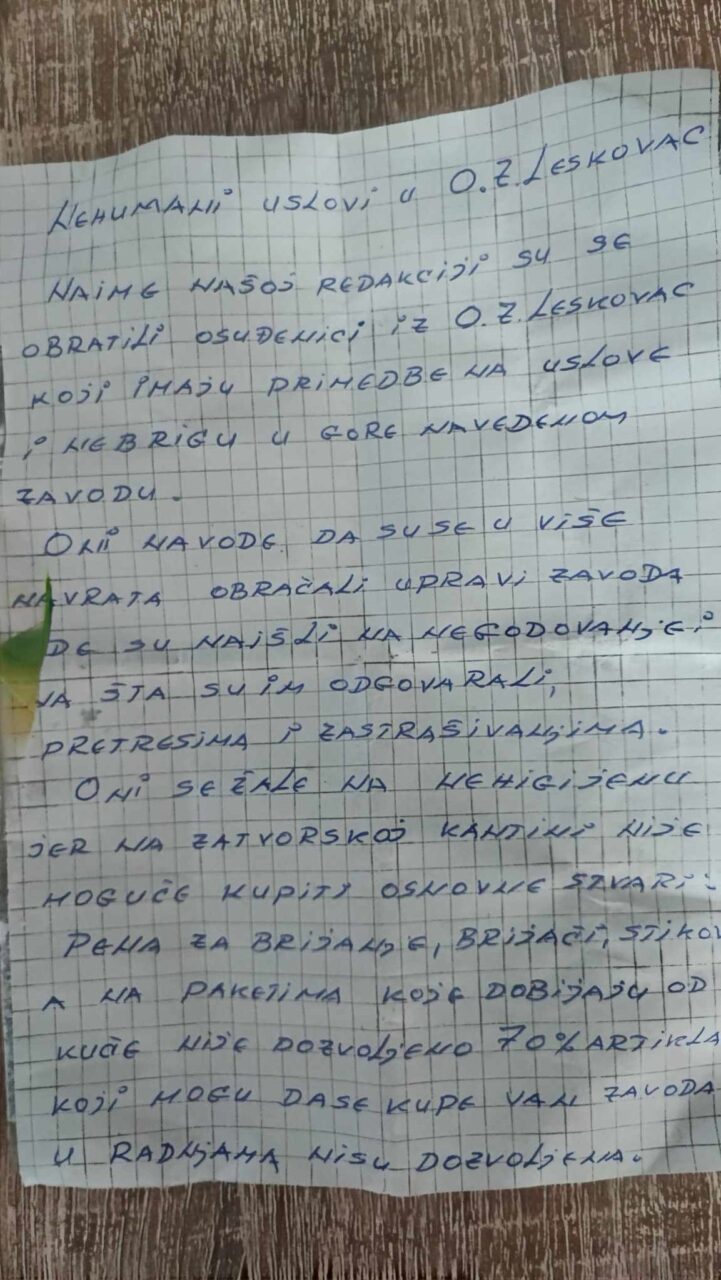 NEHUMANI USLOVI U O.Z. LESKOVAC
NAIME NAŠOJ REDAKCIJI SU SE
OBRATILI OSUĐENICI IZ O.Z. LESKOVAC
KOJI IMAJU PRIMEDBE NA USLOVE
I NEBRIGU U GORE NAVEDENOM
ZAVODU.
ONI NAVODE DA SU SE U VIŠE
NAVRATA OBRAČALI UPRAVI ZAVODA
DE SU NAIŠLI NA NEGODOVANJE I
NA ŠTA SU IM ODGOVARALI,
PRETRESIMA I ZASTRAŠIVANJIMA.
ONI SE ŽALE NA NEHIGIJENU
JER NA ZATVORSKOJ KANTINI NIJE
MOGUČE KUPITI OSNOVNE STVARI:
PENA ZA BRIJANJE, BRIJAČI, STIKOV
A NA PAKETIMA KOJE DOBIJAJU OD
KUČE NIJE DOZVOLJENO 70% ARTIKLA
KOJI MOGU DA SE KUPE VAN ZAVODA
U RADNJAMA NISU DOZVOLJENA.